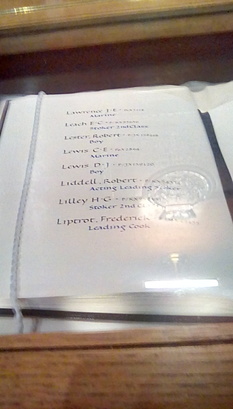 Lawrence J·E
Marine
Leach E·C
Stoker 2nd Class
Lester, Robert
Boy
Lewis C·E
Marine
Lewis D·J
Boy
Liddell, Robert
Acting Leading
Lilley H·G
Stoker 2nd
Liptrot, Frederick
Leading Cook